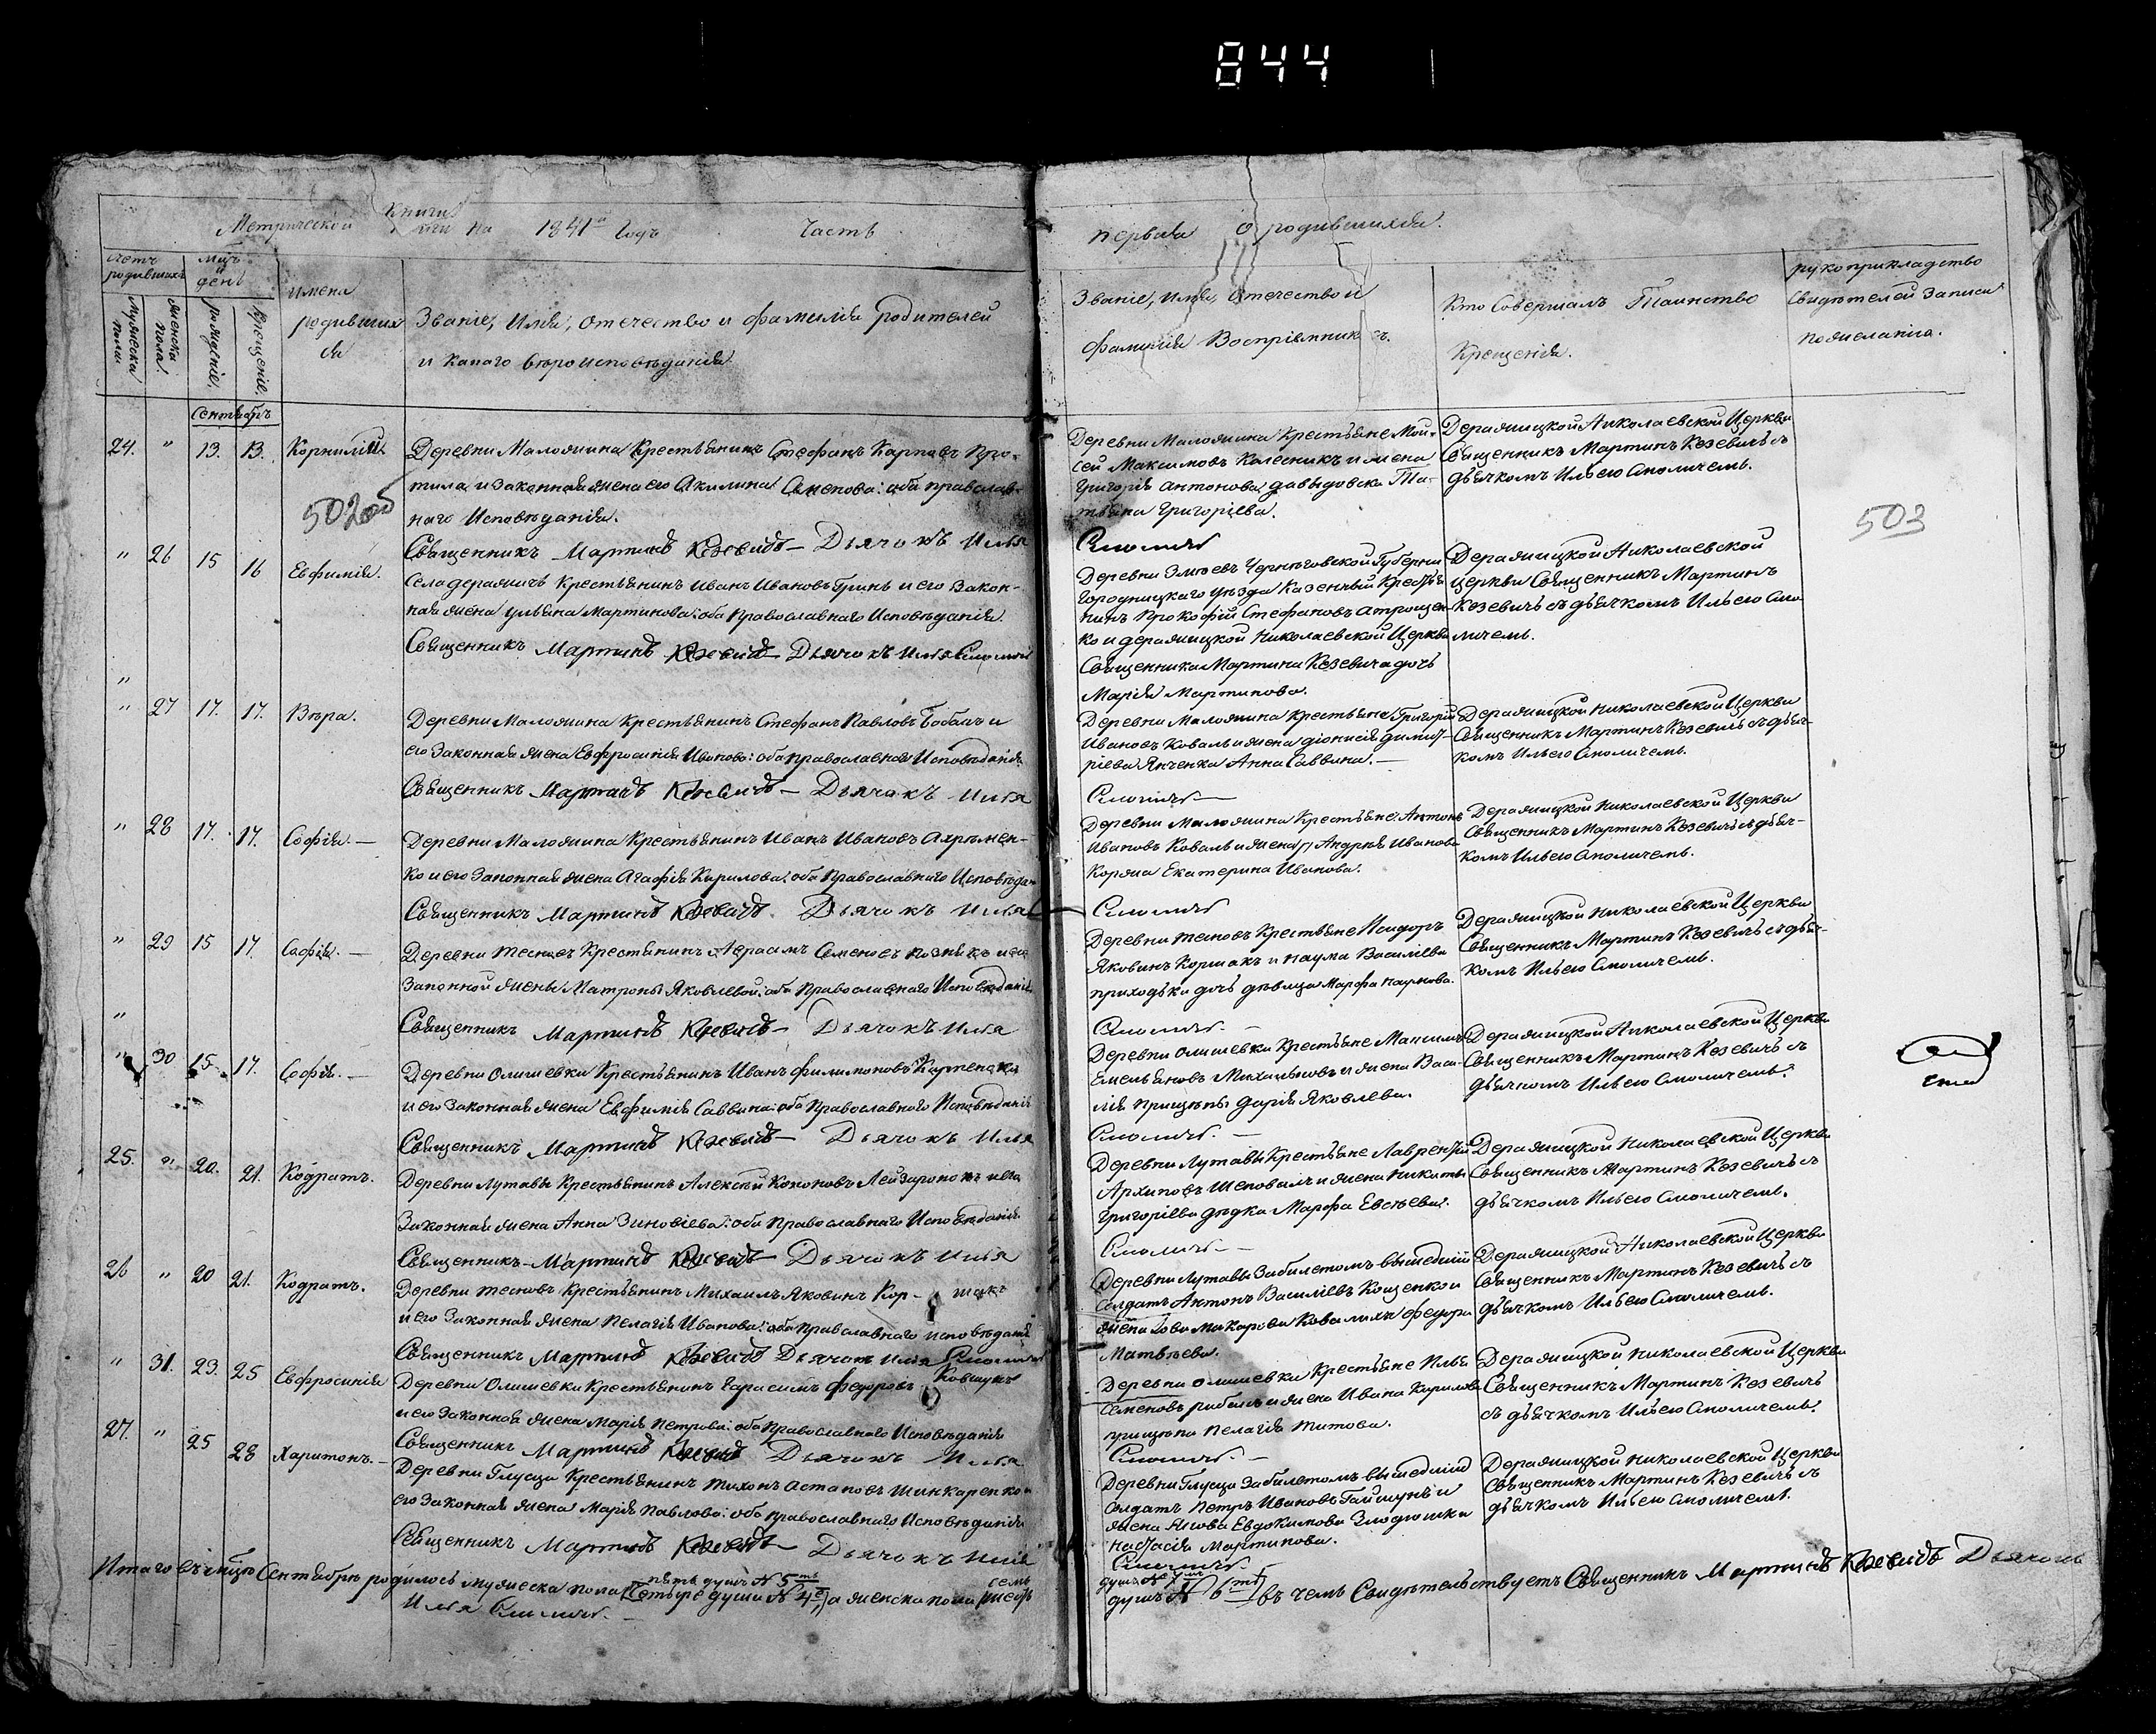 844
Метрической Книги на 1841й Годъ Часть первая О родившихся.
Счетъ родившихся
Муженска пола
Женска пола.
Мцъ и день
рожденіе,
Крещеніе.
Имена родившихся
Званіе, Имя, Отечество и Фамилія родителей
и какаго вѣроисповѣданія
Званіе, имя, отечество и
фамилія Воспріемниковъ.
Кто Совершалъ Таинство
Крещенія.
рукоприкладство
Свидѣтелей записи
по желанію.
Сентябрь
24. " 13. 13. Корнилій
Деревни Маложина Крестьянинъ Стефанъ Карповъ Про-
тила и законная жена его Акилина Семенова: оба православ-
наго Исповѣданія.
Священникъ Мартинъ Кезевичъ – Дьячокъ Илья
Смоличъ
Деревни Маложина Крестьяне Мой-
сей Максимовъ Колесникъ и жена
Григорія Антонова Давыдовска Та-
тьяна Григоріева.
Деражицкой Николаевской Церкви
Священникъ Мартинъ Кезевичъ съ
дьячкомъ Ильею Смоличемъ.
502об
503
" 26 15 16 Евфимія.
Села деражичъ Крестьянинъ Иванъ Ивановъ Гринь и его закон-
ная жена Ульяна Мартинова: оба Православнаго Исповѣданія.
Священникъ Мартинъ Кезевичъ Дьячокъ Илья Смоличъ
Деревни Змѣевъ Черниговской Губерни
Городницкаго уѣзда Казенный Крестья
нинъ Прокофій Стефановъ Атрощен-
ко и деражицкой Николаевской Церкви
Священника Мартина Кезевича дочь
Марія Мартинова.
Деражицкой Николаевской
церкви Священникъ Мартинъ
Кезевичъ съ дьячкомъ Ильею Смо-
личемъ.
"
" 27 17. 17. Вѣра.
Деревни Маложина Крестьянинъ Стефанъ Павловъ Бобанъ и
его Законная жена Евфросинія Иванова: оба православнаго Исповѣданія.
Священникъ Мартинъ Кезевичъ – Дьячокъ Илья
Смоличъ
Деревни Маложина крестьяне Григорій
Ивановъ Коваль и жена Діонисія Димит-
ріева Янченка Анна Саввина. –
Деражицкой Николаевской Церкви
Священникъ Мартинъ Кезевичъ съ дьяч-
комъ Ильею Смоличемъ.
" 28 17. 17. Софія. –
Деревни Маложина Крестьянинъ Иванъ Ивановъ Ахрѣмен-
ко и его Законная жена Агафія Кирилова: оба Православнаго Исповѣдан
Священникъ Мартинъ Кезевичъ. Дьячокъ Илья
Смоличъ
Деревни Маложина Крестьяне Антонъ
Ивановъ Коваль и жена Андрѣя Иванова
Коржа Екатерина Иванова.
Деражицкой Николаевской Церкви
Священникъ Мартинъ Кезевичъ съ дьяч-
комъ Ильею Смоличемъ.
" 29 15 17. Софія. –
Деревни Тесновъ Крестьянинъ Авраамъ Семеновъ Познякъ и его
Законной жены Матроны Яковлевой: оба Православнаго Исповѣданія
Священникъ Мартинъ Кезевичъ – Дьячокъ Илья
Смоличъ. –
Деревни Тесновъ Крестьяне Исидоръ
Яковинъ Коршакъ и Наума Василіева
приходьки дочь дѣвица Марфа Наумова.
Деражицкой Николаевской Церкви
Священникъ Мартинъ Кезевичъ съ дьяч-
комъ Ильею Смоличемъ.
"
" 30 15. 17. Софія. –
Деревни Олишевки Крестьянинъ Иванъ Филимоновъ
и его Законная жена Евфимія Саввина: оба Православнаго Исповѣданія
Священникъ Мартинъ Кезевичъ – Дьячокъ Илья
Смоличъ. –
Деревни Олишевки Крестьяне Максимъ
Емельяновъ Михальковъ и жена Васи-
лія Прищепы Дарія Яковлева.
Деражицкой Николаевской Церкви
Священникъ Мартинъ Кезевичъ съ
дьячкомъ Ильею Смоличемъ.
25. " 20. 21. Кодратъ.
Деревни Лутавы Крестьянинъ Алексѣй Кононовъ и его
Законная жена Анна Зиновіева: оба Православнаго Исповѣданія.
Священникъ – Мартинъ Кезевичъ – Дьячокъ Илья
Смоличъ –
Деревни Лутавы Крестьяне Лаврентій
Архиповъ Шеповалъ и жена Никиты
Григоріева Дѣдка Марфа Евсѣева.
Деражицкой Николаевской Церкви
Священникъ Мартинъ Кезевичъ съ
дьячкомъ Ильею Смоличемъ.
26 " 20 21. Кодратъ.
Деревни Тесновъ Крестьянинъ Михаилъ Яковинъ Кор- шакъ
и его Законная жена Пелагія Иванова: оба Православнаго исповѣданія
Священникъ Мартинъ Кезевичъ Дьячокъ Илья Смоличъ
Деревни Лутавы Забилетомъ вышедшій
Солдатъ Антонъ Василіевъ Кощенко и
жена Іова Макарова Ковалиха Федора
Матвѣева.
Деражицкой Николаевской Церкви
Священникъ Мартинъ Кезевичъ съ
дьячкомъ Ильею Смоличемъ.
" 31. 23. 25 Евфросинія
Деревни Олишевки Крестьянинъ Гарасимъ Федоровъ Ковтунъ
и его Законная жена Марія Петрова: оба Православнаго Исповѣданія
Священникъ Мартинъ Кезевичъ Дьячокъ Илья
Смоличъ. –
Деревни Олишевки Крестьяне Илья
Семеновъ и жена Ивана Кирилова
прищепа Пелагія Титова.
Деражицкой Николаевской Церкви
Священникъ Мартинъ Кезевичъ
съ дьячкомъ Ильею Смоличемъ.
27. " 25 28 Харитонъ. –
Деревни Глусци Крестьянинъ Тихонъ Астаповъ Шинкаренко и
его Законная жена Марія Павлова: оба православнаго Исповѣданія
Священникъ Мартинъ Кезевичъ – Дьячокъ Илья
Смоличъ. –
Деревни Глусци Забилетомъ вышедшій
Солдатъ Петръ Ивановъ и
жена Якова Евдокимова
Настасія Мартинова.
Деражицкой Николаевской Церкви
Священникъ Мартинъ Кезевичъ съ
дьячкомъ Ильею Смоличемъ.
Итого въ мцѣ Сентябрѣ родилось мужеска пола пять душъ № 5ть (Четыре души № 4е,) а женска пола семь (шесть
душъ № 7мь душъ № 6ть) въ чемъ Свидѣтельствуетъ Священникъ Мартинъ Кезевичъ Дьячокъ
Илья Смоличъ. –